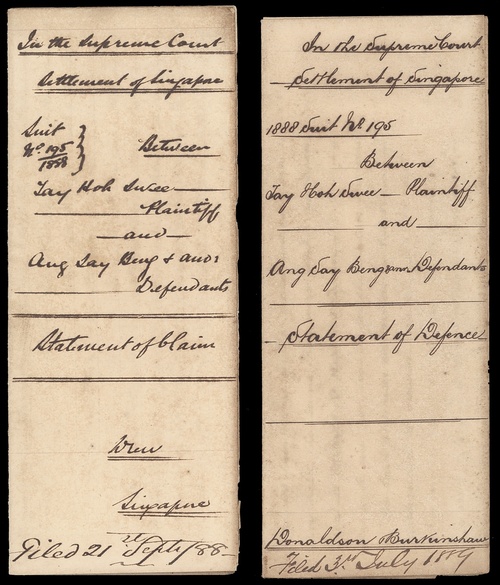 In the Supreme Court
Settlement of Singapore
Suit
No. 195
1888
Between
Tay Hoh Swee
Plaintiff
and
Ang Say Beng & anor
Defendants
Statement of Claim
Wren
Singapore
Filed 21st Sept/88
In the Supreme Court
Settlement of Singapore
1888 Suit No. 195
Between
Tay Hoh Swee Plaintiff
and
Ang Say Beng Defendants
Statement of Defence
Donaldson & Burkinshaw
Filed July